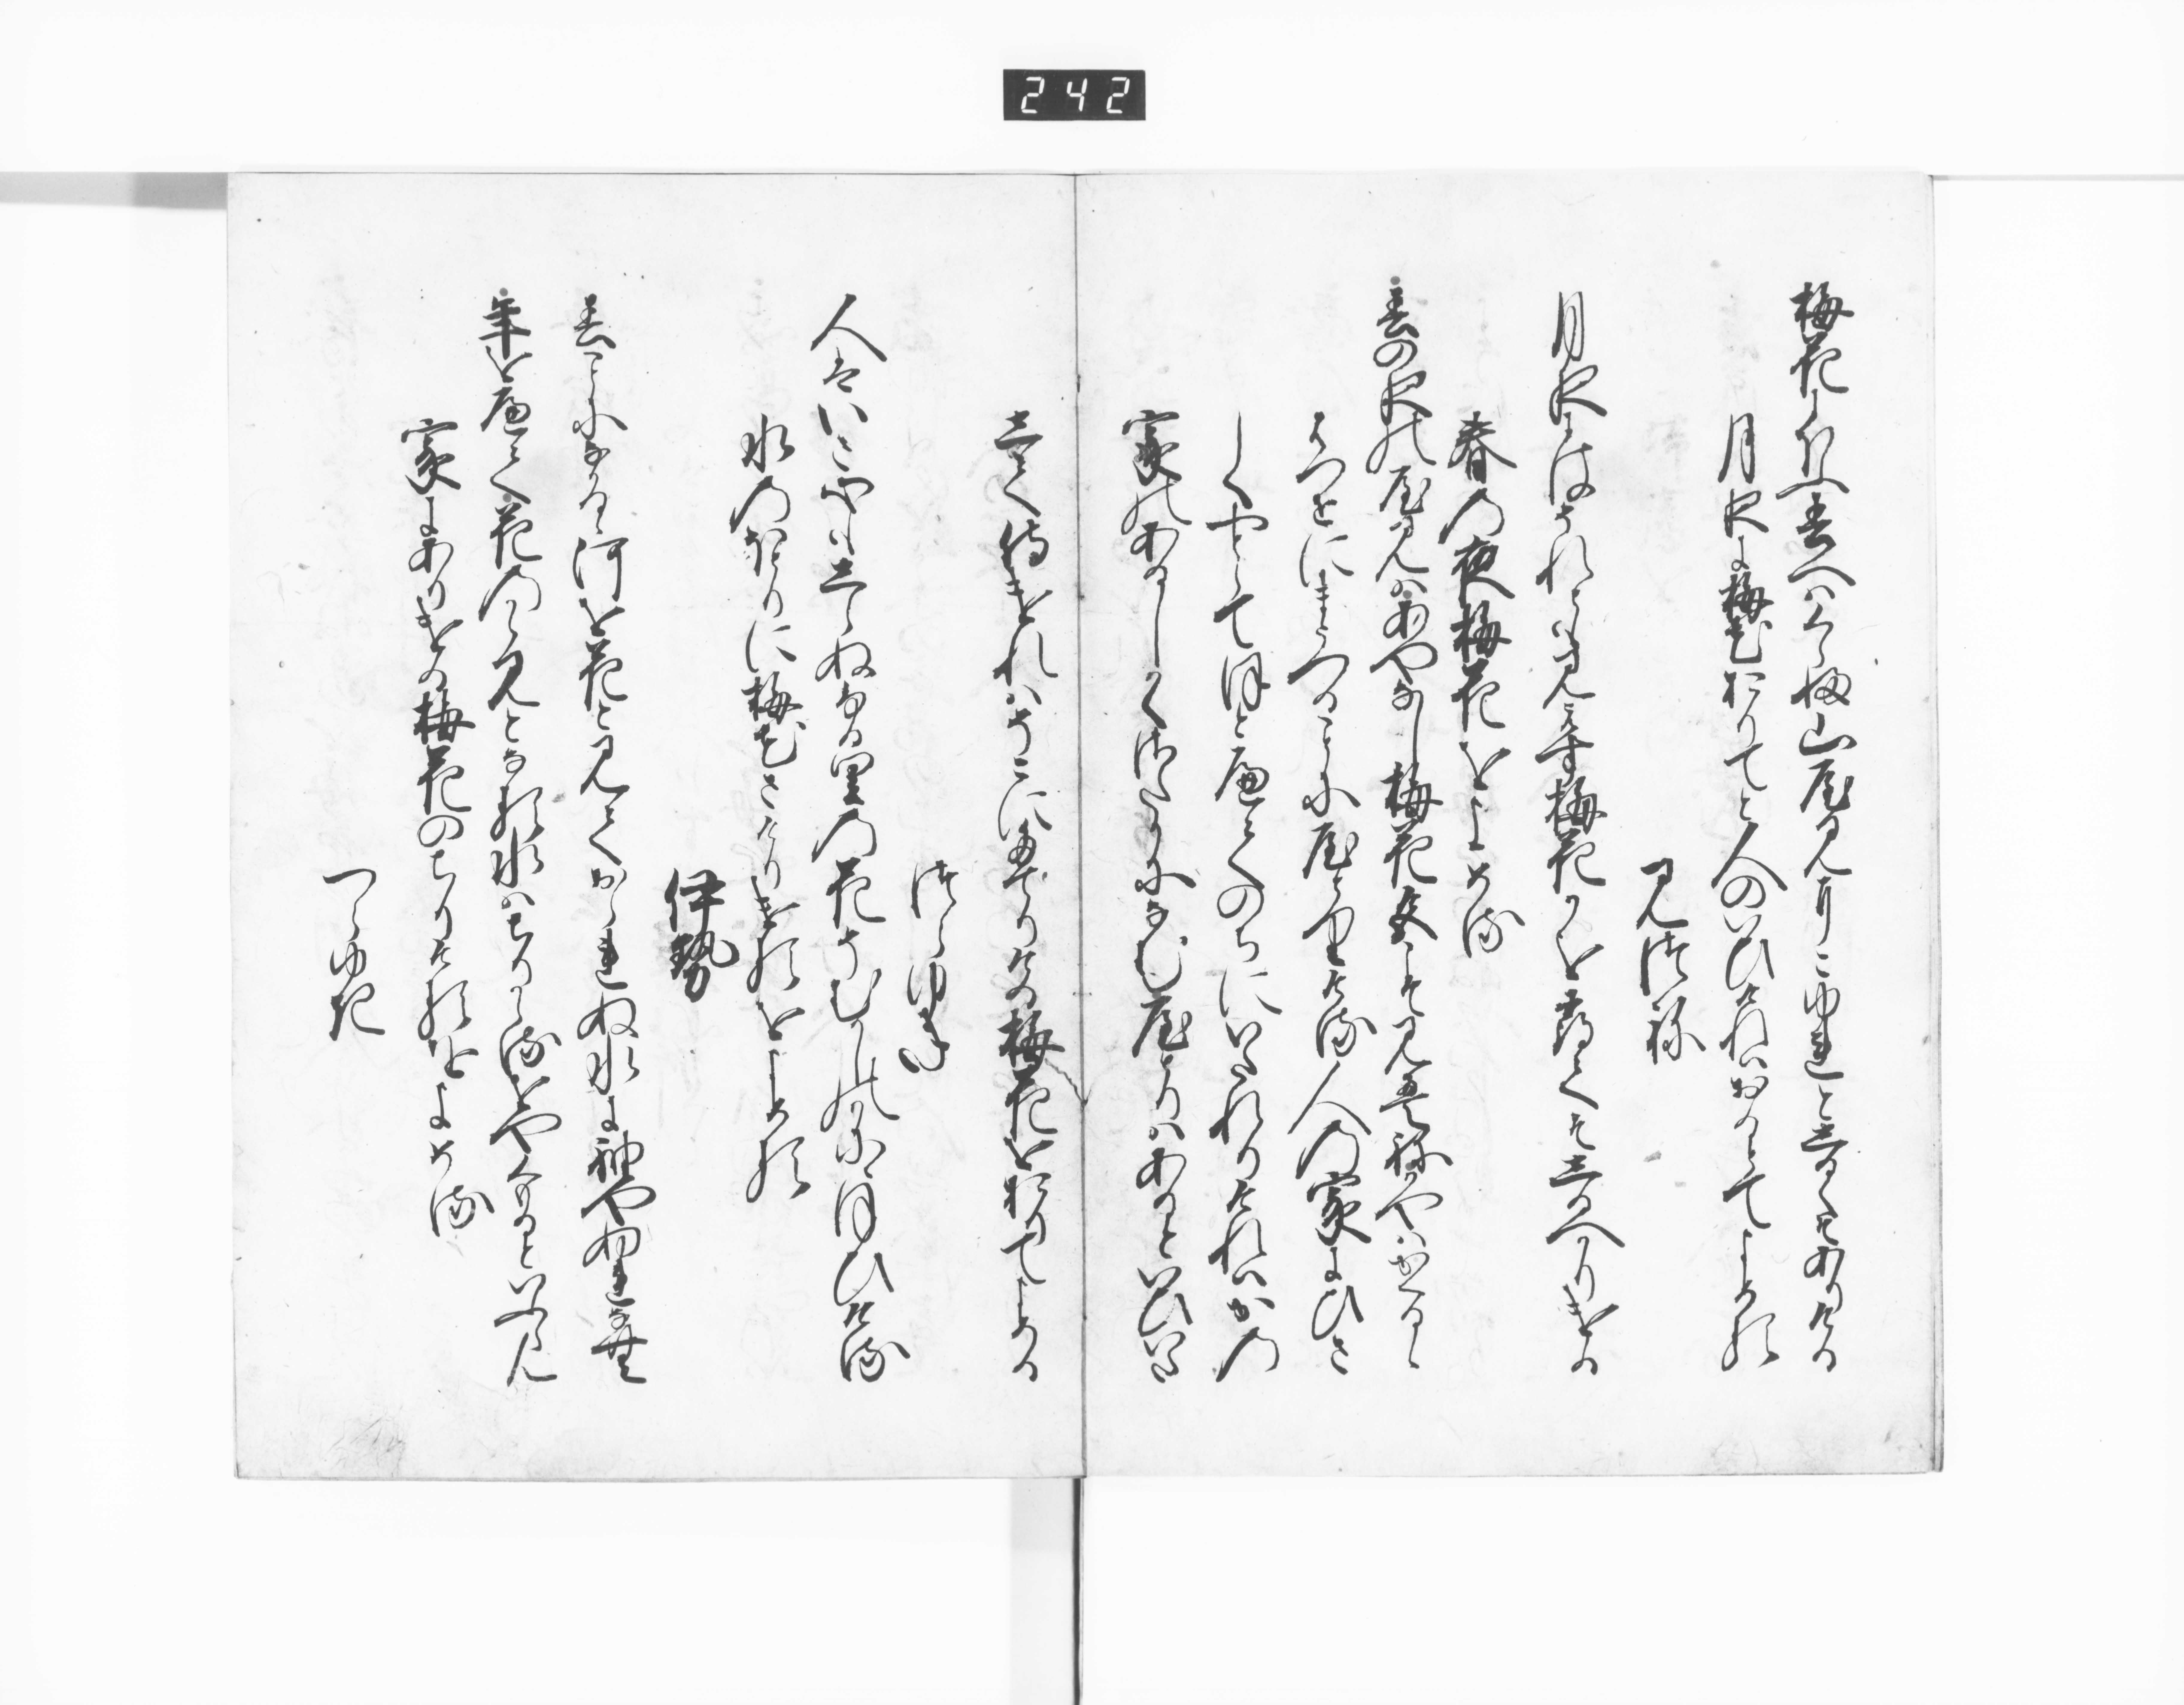 242
梅花にほふ春へはくらふ山やみにこゆれとしるくそありける
月夜に梅花おりてと人のいひけれはおるとてよめる
みつね
月夜にはそれとも見えす梅花かを尋てそしるへかりける
春の夜梅花をよめる
春の夜のやみはあやなし梅花色こそ見えねかやはかくるゝ
はつせにまうつることにやとりける人の家にひさ
しくやとらてほとへてのちにいたれりけれはかの
家のあるしかくさたかになむやとりはあるといひい
たして侍けれはそこにたてりける梅花をおりてよめる
つらゆき
人はいさ心もしらすふるさとの花そむかしのかににほひける
水のほとりに梅花さけりけるをよめる
伊勢
春ことになかるゝ河を花と見ておられぬ水に袖やぬれなむ
年をへて花のかゝみとなる水はちりかゝるをやくもるといふらん
家にありける梅花のちりけるをよめる
つらゆき